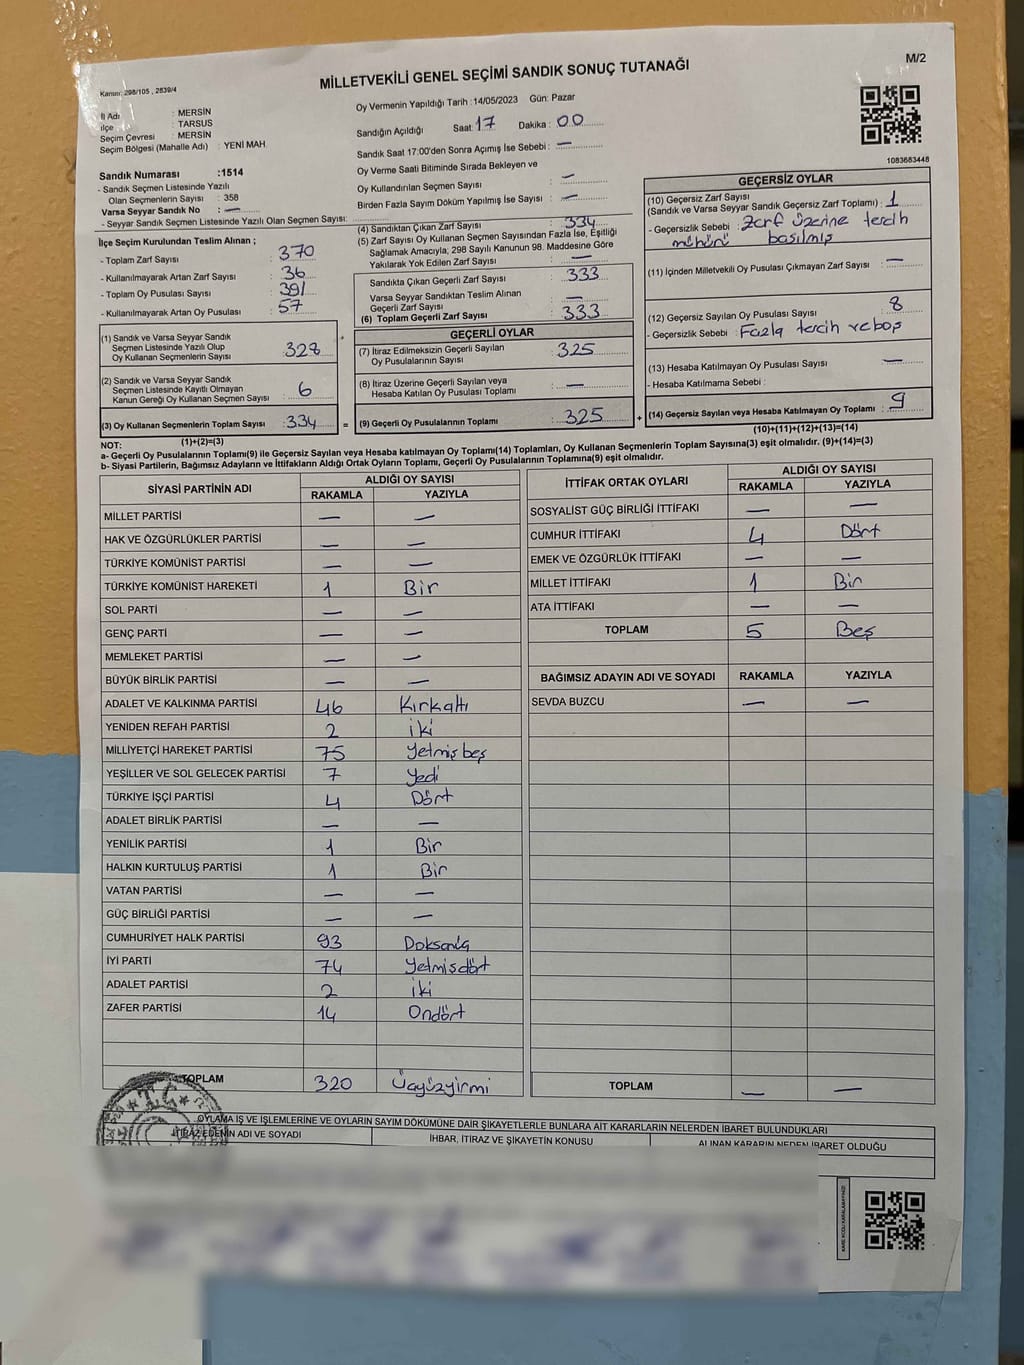 M/2
MİLLETVEKİLİ GENEL SEÇİMİ SANDIK SONUÇ TUTANAĞI
Kanun: 298/105 , 2839/4
İl Adı : MERSİN
İlçe : TARSUS
Seçim Çevresi : MERSİN
Seçim Bölgesi (Mahalle Adı) : YENİ MAH
Sandık Numarası :1514
- Sandık Seçmen Listesinde Yazılı
Olan Seçmenlerin Sayısı : 358
Varsa Seyyar Sandık No : —
- Seyyar Sandık Seçmen Listesinde Yazılı Olan Seçmen Sayısı:
Oy Vermenin Yapıldığı Tarih :14/05/2023 Gün: Pazar
Sandığın Açıldığı Saat: 17 Dakika : 00
Sandık Saat 17:00'den Sonra Açımış İse Sebebi : —
Oy Verme Saati Bitiminde Sırada Bekleyen ve
Oy Kullandırılan Seçmen Sayısı : —
Birden Fazla Sayım Döküm Yapılmış İse Sayısı : —
1083683448
İlçe Seçim Kurulundan Teslim Alınan ;
- Toplam Zarf Sayısı : 370
- Kullanılmayarak Artan Zarf Sayısı : 36
- Toplam Oy Pusulası Sayısı : 391
- Kullanılmayarak Artan Oy Pusulası : 57
(1) Sandık ve Varsa Seyyar Sandık
Seçmen Listesinde Yazılı Olup
Oy Kullanan Seçmenlerin Sayısı : 328
(2) Sandık ve Varsa Seyyar Sandık
Seçmen Listesinde Kayıtlı Olmayan
Kanun Gereği Oy Kullanan Seçmen Sayısı : 6
(3) Oy Kullanan Seçmenlerin Toplam Sayısı : 334
(1)+(2)=(3)
(4) Sandıktan Çıkan Zarf Sayısı : 334
(5) Zarf Sayısı Oy Kullanan Seçmen Sayısından Fazla İse, Eşitliği
Sağlamak Amacıyla; 298 Sayılı Kanunun 98. Maddesine Göre
Yakılarak Yok Edilen Zarf Sayısı : —
Sandıkta Çıkan Geçerli Zarf Sayısı : 333
Varsa Seyyar Sandıktan Teslim Alınan
Geçerli Zarf Sayısı : —
(6) Toplam Geçerli Zarf Sayısı : 333
GEÇERLİ OYLAR
(7) İtiraz Edilmeksizin Geçerli Sayılan
Oy Pusulalarının Sayısı : 325
(8) İtiraz Üzerine Geçerli Sayılan veya
Hesaba Katılan Oy Pusulası Toplamı : —
= (9) Geçerli Oy Pusulalarının Toplamı : 325 +
GEÇERSİZ OYLAR
(10) Geçersiz Zarf Sayısı
(Sandık ve Varsa Seyyar Sandık Geçersiz Zarf Toplamı) : 1
- Geçersizlik Sebebi : Zarf üzerine tercih
mühürü basılmış
(11) İçinden Milletvekili Oy Pusulası Çıkmayan Zarf Sayısı : —
(12) Geçersiz Sayılan Oy Pusulası Sayısı : 8
- Geçersizlik Sebebi : Fazla tercih ve boş
(13) Hesaba Katılmayan Oy Pusulası Sayısı : —
- Hesaba Katılmama Sebebi :
(14) Geçersiz Sayılan veya Hesaba Katılmayan Oy Toplamı : 9
(10)+(11)+(12)+(13)=(14)
NOT:
a- Geçerli Oy Pusulalarının Toplamı(9) ile Geçersiz Sayılan veya Hesaba katılmayan Oy Toplamı(14) Toplamları, Oy Kullanan Seçmenlerin Toplam Sayısına(3) eşit olmalıdır. (9)+(14)=(3)
b- Siyasi Partilerin, Bağımsız Adayların ve İttifakların Aldığı Ortak Oyların Toplamı, Geçerli Oy Pusulalarının Toplamına(9) eşit olmalıdır.
SİYASİ PARTİNİN ADI ALDIĞI OY SAYISI
RAKAMLA YAZIYLA
MİLLET PARTİSİ — —
HAK VE ÖZGÜRLÜKLER PARTİSİ — —
TÜRKİYE KOMÜNİST PARTİSİ — —
TÜRKİYE KOMÜNİST HAREKETİ 1 Bir
SOL PARTİ — —
GENÇ PARTİ — —
MEMLEKET PARTİSİ — —
BÜYÜK BİRLİK PARTİSİ — —
ADALET VE KALKINMA PARTİSİ 46 Kırkaltı
YENİDEN REFAH PARTİSİ 2 iki
MİLLİYETÇİ HAREKET PARTİSİ 75 Yetmiş beş
YEŞİLLER VE SOL GELECEK PARTİSİ 7 Yedi
TÜRKİYE İŞÇİ PARTİSİ 4 Dört
ADALET BİRLİK PARTİSİ — —
YENİLİK PARTİSİ 1 Bir
HALKIN KURTULUŞ PARTİSİ 1 Bir
VATAN PARTİSİ — —
GÜÇ BİRLİĞİ PARTİSİ — —
CUMHURİYET HALK PARTİSİ 93 Doksanüç
İYİ PARTİ 74 Yetmişdört
ADALET PARTİSİ 2 iki
ZAFER PARTİSİ 14 Ondört
TOPLAM 320 Üçyüzyirmi
İTTİFAK ORTAK OYLARI ALDIĞI OY SAYISI
RAKAMLA YAZIYLA
SOSYALİST GÜÇ BİRLİĞİ İTTİFAKI — —
CUMHUR İTTİFAKI 4 Dört
EMEK VE ÖZGÜRLÜK İTTİFAKI — —
MİLLET İTTİFAKI 1 Bir
ATA İTTİFAKI — —
TOPLAM 5 Beş
BAĞIMSIZ ADAYIN ADI VE SOYADI RAKAMLA YAZIYLA
SEVDA BUZCU — —
TOPLAM — —
T.C.
OYLAMA İŞ VE İŞLEMLERİNE VE OYLARIN SAYIM DÖKÜMÜNE DAİR ŞİKAYETLERLE BUNLARA AİT KARARLARIN NELERDEN İBARET BULUNDUKLARI
İTİRAZ EDENİN ADI VE SOYADI İHBAR, İTİRAZ VE ŞİKAYETİN KONUSU ALINAN KARARIN NEDEN İBARET OLDUĞU